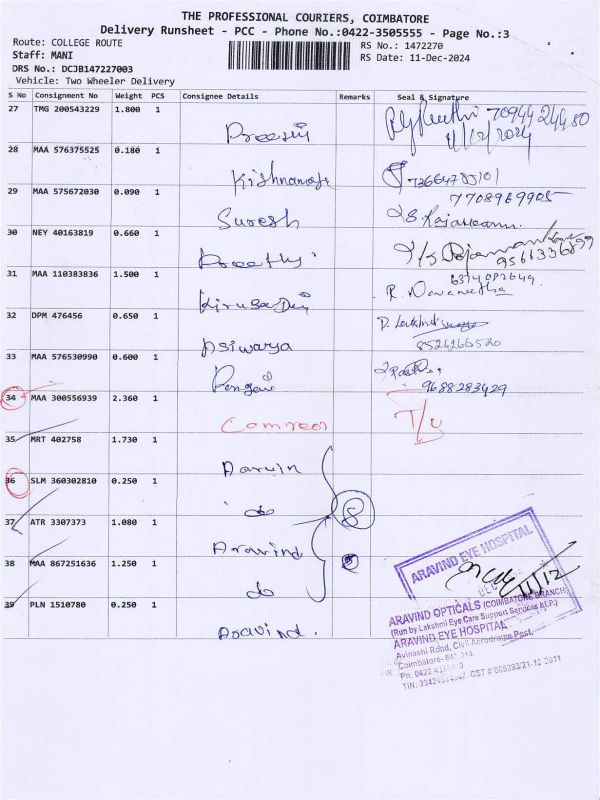 THE PROFESSIONAL COURIERS, COIMBATORE
Delivery Runsheet - PCC - Phone No.:0422-3505555 - Page No.:3
Route: COLLEGE ROUTE
RS No.: 1472270
Staff: MANI
RS Date: 11-Dec-2024
DRS No.: DCJB147227003
Vehicle: Two Wheeler Delivery
S No Consignment No Weight PCS Consignee Details Remarks Seal & Signature
27 TMG 200543229 1.800 1
28 MAA 576375525 0.180 1
29 MAA 575672030 0.090 1
7708969905
Suresh
30 NEY 40163819 0.660 1
Preethi
31 MAA 110383836 1.500 1
R. Navaneetha
32 DPM 476456 0.650 1
Asiwarya
8526266520
33 MAA 576530990 0.600 1
9688283429
34 MAA 300556939 2.360 1
35 MRT 402758 1.730 1
Darwin
36 SLM 360302810 0.250 1
do
8
37 ATR 3307373 1.080 1
Aravind
38 MAA 867251636 1.250 1
do
39 PLN 1510780 0.250 1
Aravind.
ARAVIND EYE HOSPITAL
11/12
ARAVIND OPTICALS (COIMBATORE BRANCH)
(Run by Lakshmi Eye Care Support Services LLP.)
ARAVIND EYE HOSPITAL
Avinashi Road, Civil Aerodrome Post,
Coimbatore-
Ph: 0422
TIN: CST # 21-12-2011